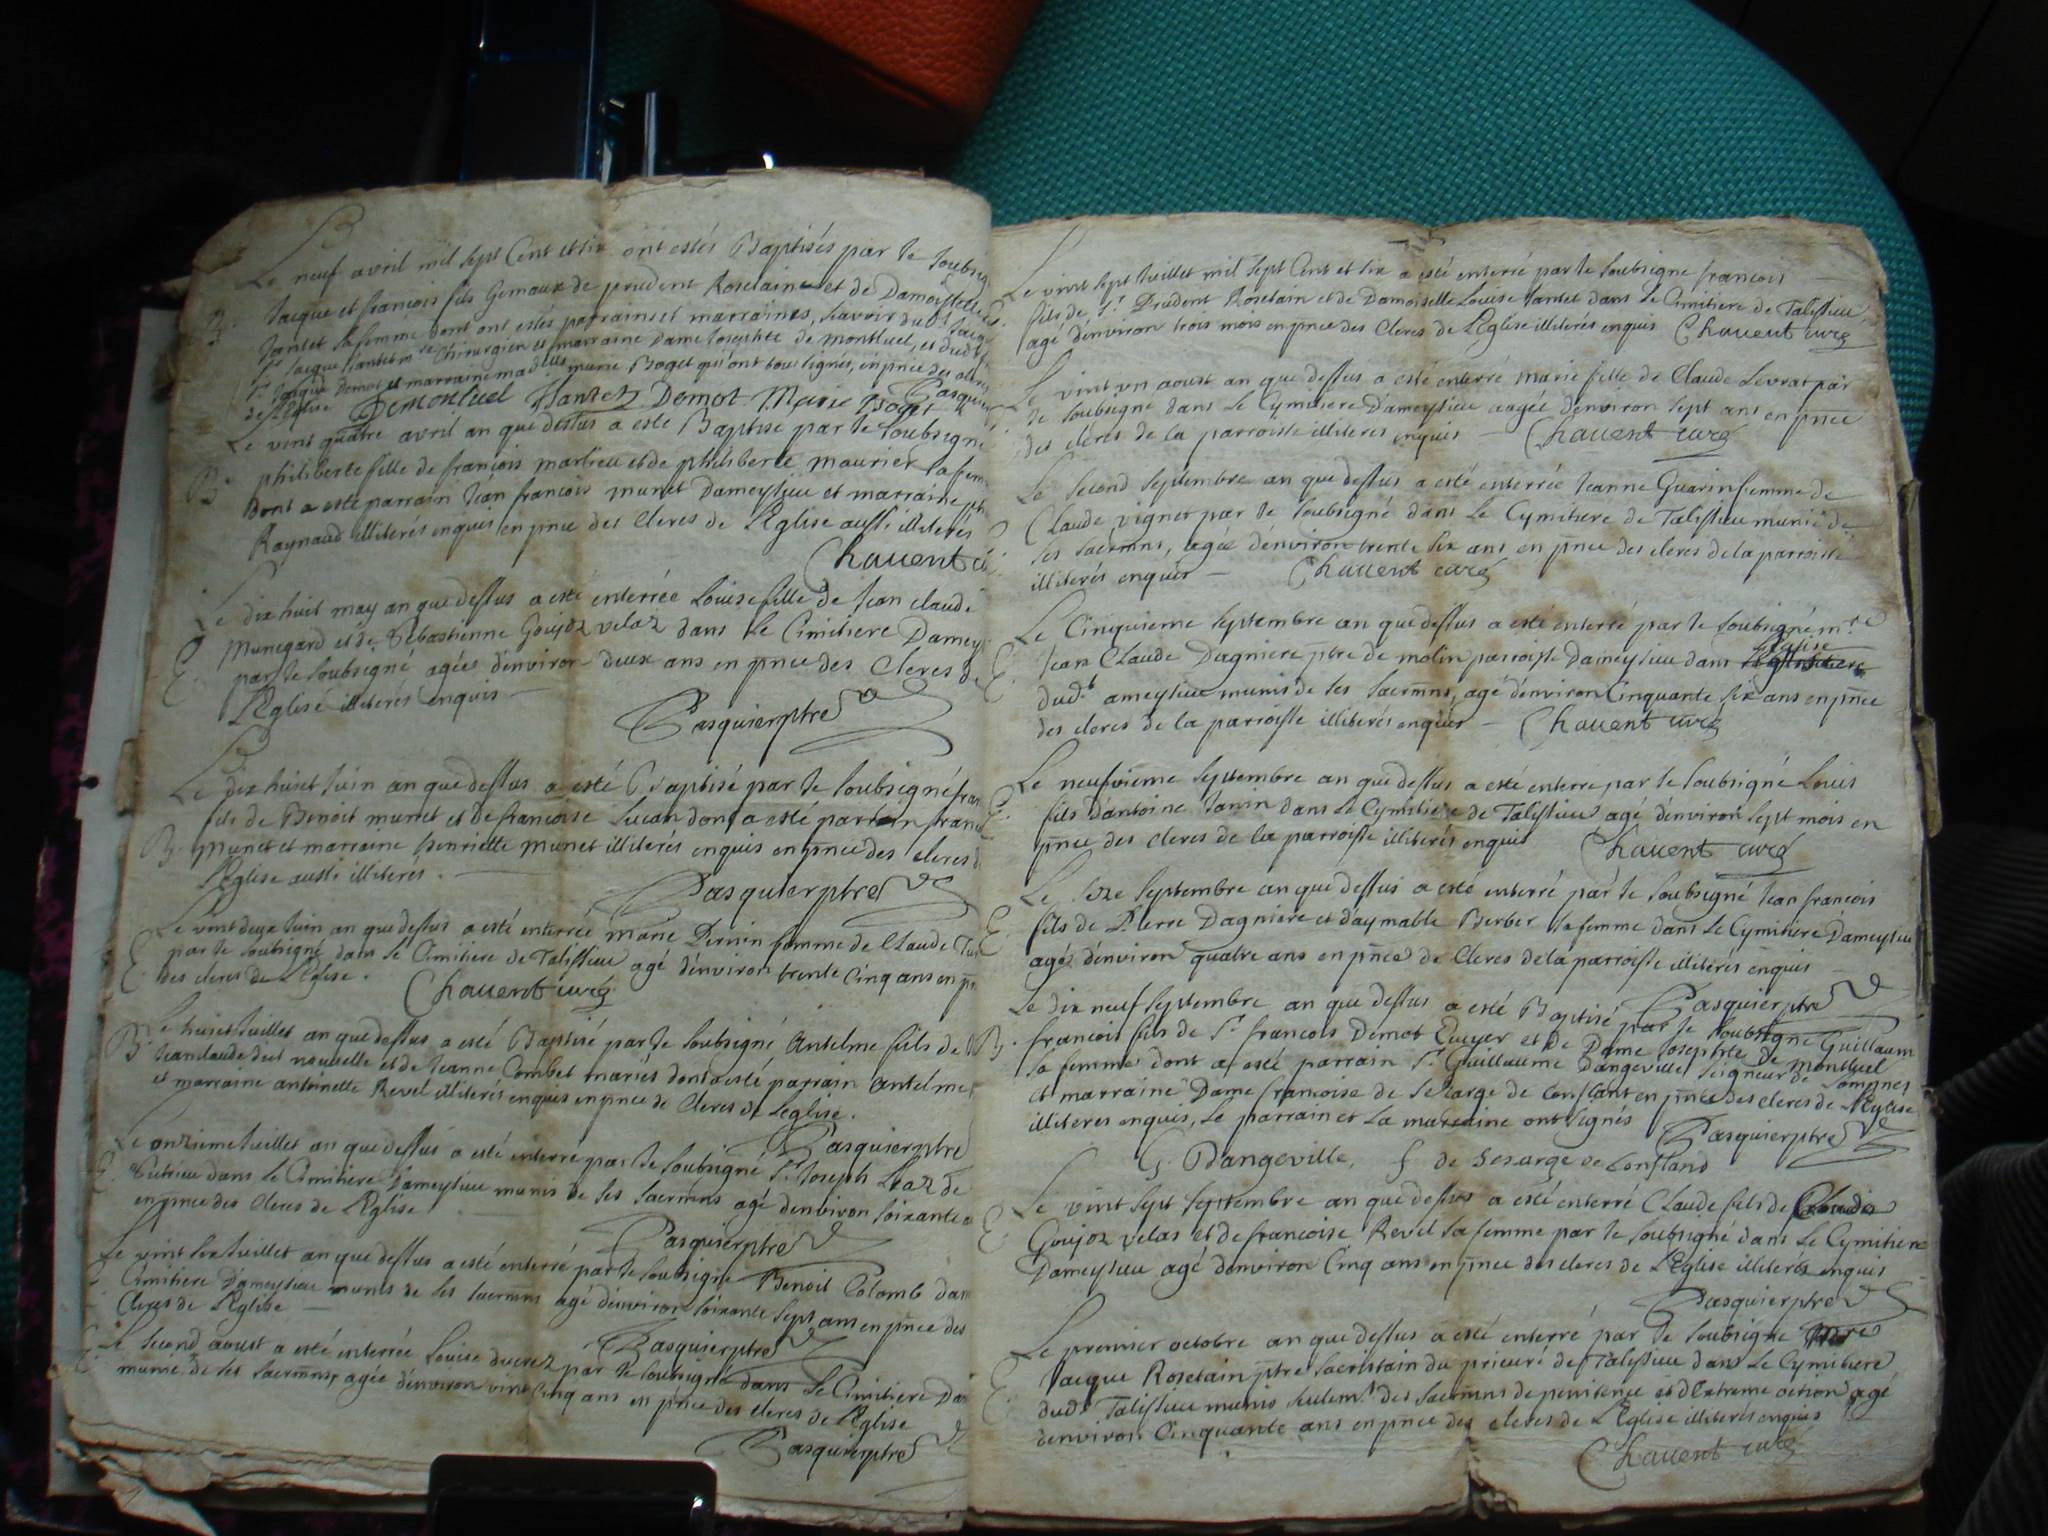 Le neuf avril mil sept Cent et six ont estés Baptisés par le soubsig
B. Jacque et francois fils Gemaux de prudent Roselain et de Damoiselle
Jantet sa femme dont ont estés parrains et marraines, scavoir dud.
Sr Jacque Jantet mre Chirurgien et marraine Dame Josephte de montluel, et dud.
Sr Jacque Demot et marraine madlle marie Boget qui ont tous signés, en pnce des cleres
de l'Eglise Demontluel Jantet Demot Marie Boget Pasquier
Le vint quatre avril an que dessus a esté Baptisé par le soubsigné
B. philiberte fille de francois marlieu et de philiberte maurier sa fem
dont a esté parrain Jean francois munet Dameysieu et marraine ph
Raynaud illiterés enquis en pnce des Cleres de l'Eglise aussi illiterés
Chauent
Le dix huit may an que dessus a esté enterrée Louise fille de Jean claude
E. Munegard et de Sebastienne Goujoz velaz dans Le Cimitiere Damey
par le soubsigné agée d'environ deux ans en pnce des Cleres de
l'Eglise illiterés enquis —
Pasquier ptre
Le dix huict Juin an que dessus a esté Baptisé par le soubsigné fran
fils de Benoit munet et de francoise Lucan dont a esté parrain franc
B. Munet et marraine henriette munet illiterés enquis en pnce des cleres d
l'Eglise aussi illiterés. —
Pasquier ptre
Le vint deux Juin an que dessus a esté enterrée marie Pernin femme de Claude
E. par le soubsigné dans le Cimitiere de Talissieu agé d'environ trente Cinq ans en p
des cleres de l'Eglise. Chauent curé
Le huict Juillet an que dessus a esté Baptisé par le soubsigné Anselme fils de
B. Jean claude dest nouvelle et de Jeanne Combet mariés dont a esté parrain Anselme
et marraine antoinette Revel illiterés enquis en pnce de Cleres de Leglise.
Pasquier ptre
Le onzieme Juillet an que dessus a esté enterré par le soubsigné Sr Joseph de
E. Vutrieu dans le Cimitiere Dameysieu munis de ses sacremns agé d'environ soixante
en pnce des Cleres de l'Eglise
Pasquier ptre
Le vint six Juillet an que dessus a esté enterré par le soubsigné Benoit Colomb dan
E. Cimitiere Dameysieu munis de ses sacremns agé d'environ soixante sept ans en pnce des
Cleres de l'Eglise —
Pasquier ptre
Le second aoust a esté enterrée Louise ducrez par le soubsigné dans Le Cimitiere Da
E. munie de ses sacremns, agée d'environ vint Cinq ans en pnce des cleres de l'Eglise
Pasquier ptre
Le vint sept Juillet mil sept Cent et six a esté enterré par le soubsigné francois
E. fils de Sr Prudent Roselain et de Damoiselle Louise Jantet dans Le Cimitiere de Talissieu
agé d'environ trois mois en pnce des Cleres de l'Eglise illiterés enquis Chauent curé
Le vint un aoust an que dessus a esté enterré marie fille de Claude Levrat par
le soubsigné dans Le Cymitiere Dameysieu aagée d'environ sept ans en pnce
des cleres de la parroisse illiterés enquis — Chauent curé
Le second septembre an que dessus a esté enterrée Jeanne Guarin femme de
Claude vigner par le soubsigné dans Le Cymitiere de Talissieu munie de
ses sacremns, agée d'environ trente six ans en pnce des cleres de la parroisse
illiterés enquis — Chauent curé
Le Cinquieme septembre an que dessus a esté enterré par le soubsigné mre
E. Jean Claude Dagniere ptre de molin parroisse Dameysieu dans l'Eglise
dudt ameysieu munis de ses sacremns, agé d'environ Cinquante six ans en pnce
des cleres de la parroisse illiterés enquis — Chauent curé
Le neufvieme septembre an que dessus a esté enterré par le soubsigné Louis
E. fils d'antoine Janin dans Le Cymitiere de Talissieu agé d'environ sept mois en
pnce des cleres de la parroisse illiterés enquis Chauent curé
Le seze septembre an que dessus a esté enterré par le soubsigné Jean francois
E. fils de Pierre Dagniere et d'aymable Berber sa femme dans Le Cymitiere Dameysieu
agé d'environ quatre ans en pnce de Cleres de la parroisse illiterés enquis —
Pasquier ptre
Le dix neuf septembre an que dessus a esté Baptisé par le soubsigné Guillaum
B. francois fils de Sr francois Demot Ecuyer et de Dame Josephte de Montluel
sa femme dont a esté parrain Sr Guillaume Dangeville seigneur de Lompnes
et marraine Dame francoise de Sesarge de Conflant en pnce des cleres de l'Eglise
illiterés enquis, Le parrain et La marraine ont signés Pasquier ptre
G. Dangeville, f de Sesarge de Confland
Le vint sept septembre an que dessus a esté enterré Claude fils de Claude
E. Goujoz velas et de francoise Revel sa femme par le soubsigné dans Le Cymitiere
Dameysieu agé d'environ Cinq ans en pnce des cleres de l'Eglise illiterés enquis
Pasquier ptre
Le premier octobre an que dessus a esté enterré par le soubsigné mre
E. Jacque Roselain ptre sacristain du prieuré de Talissieu dans Le Cymitiere
dudt Talissieu munis seulemt des sacremns de penitence et d'Extreme oction agé
d'environ Cinquante ans en pnce des cleres de l'Eglise illiterés enquis
Chauent curé